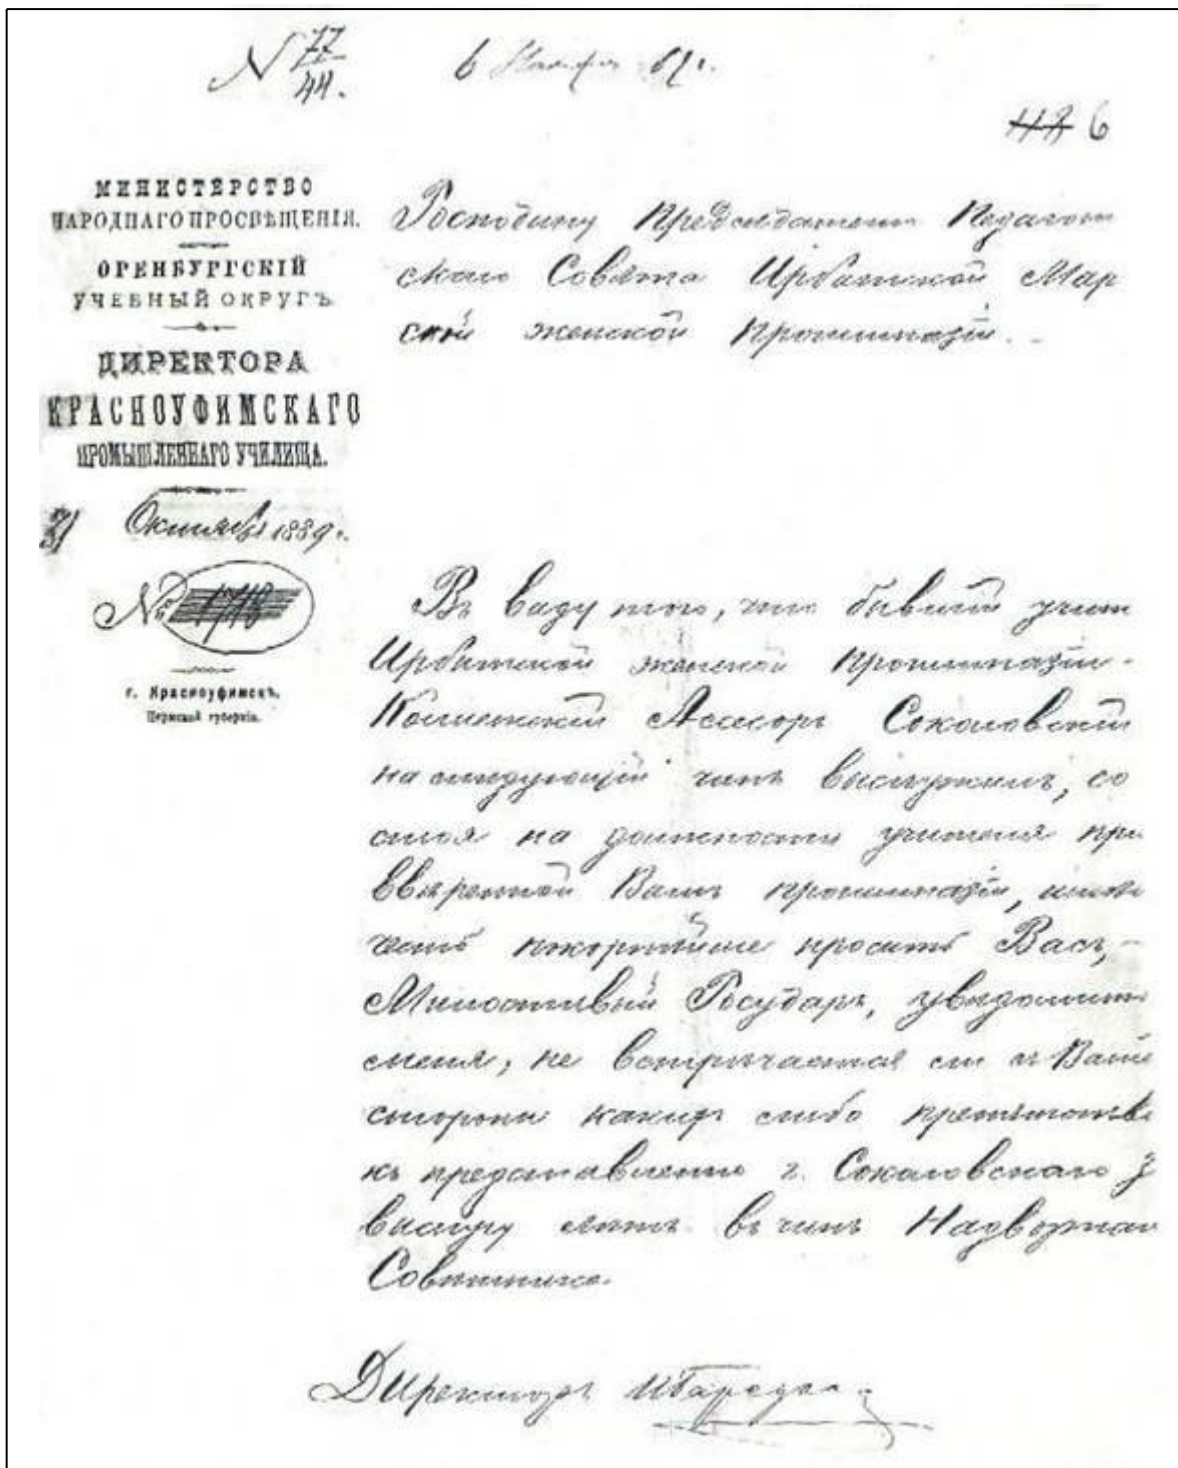 N 77/44.
6
6
МИНИСТЕРСТВО
НАРОДНАГО ПРОСВѢЩЕНІЯ.
ОРЕНБУРГСКІЙ
УЧЕБНЫЙ ОКРУГЪ
ДИРЕКТОРА
КРАСНОУФИМСКАГО
ПРОМЫШЛЕННАГО УЧИЛИЩА.
31 Октября 1889 г.
№ 1718
г. Красноуфимскъ.
Пермской губерніи.
Господину Предсѣдателю Педагоги
скаго Совѣта Ирбитской Мар
ской женской прогимназіи.
Въ виду того, что бывшій учит
Ирбитской женской прогимназіи -
Коллежскій Асессоръ Соколовскій
на слѣдующій чинъ выслужилъ, со
стоя на должности учителя при
ввѣренной Вамъ прогимназіи, имѣю
честь покорнѣйше просить Васъ, -
Милостивый Государь, увѣдомить
меня, не встрѣчается ли съ Вашей
стороны какихъ либо препятстві
къ представленію г. Соколовскаго з
выслугу лѣтъ въ чинъ Надворнаго
Совѣтника.
Директоръ